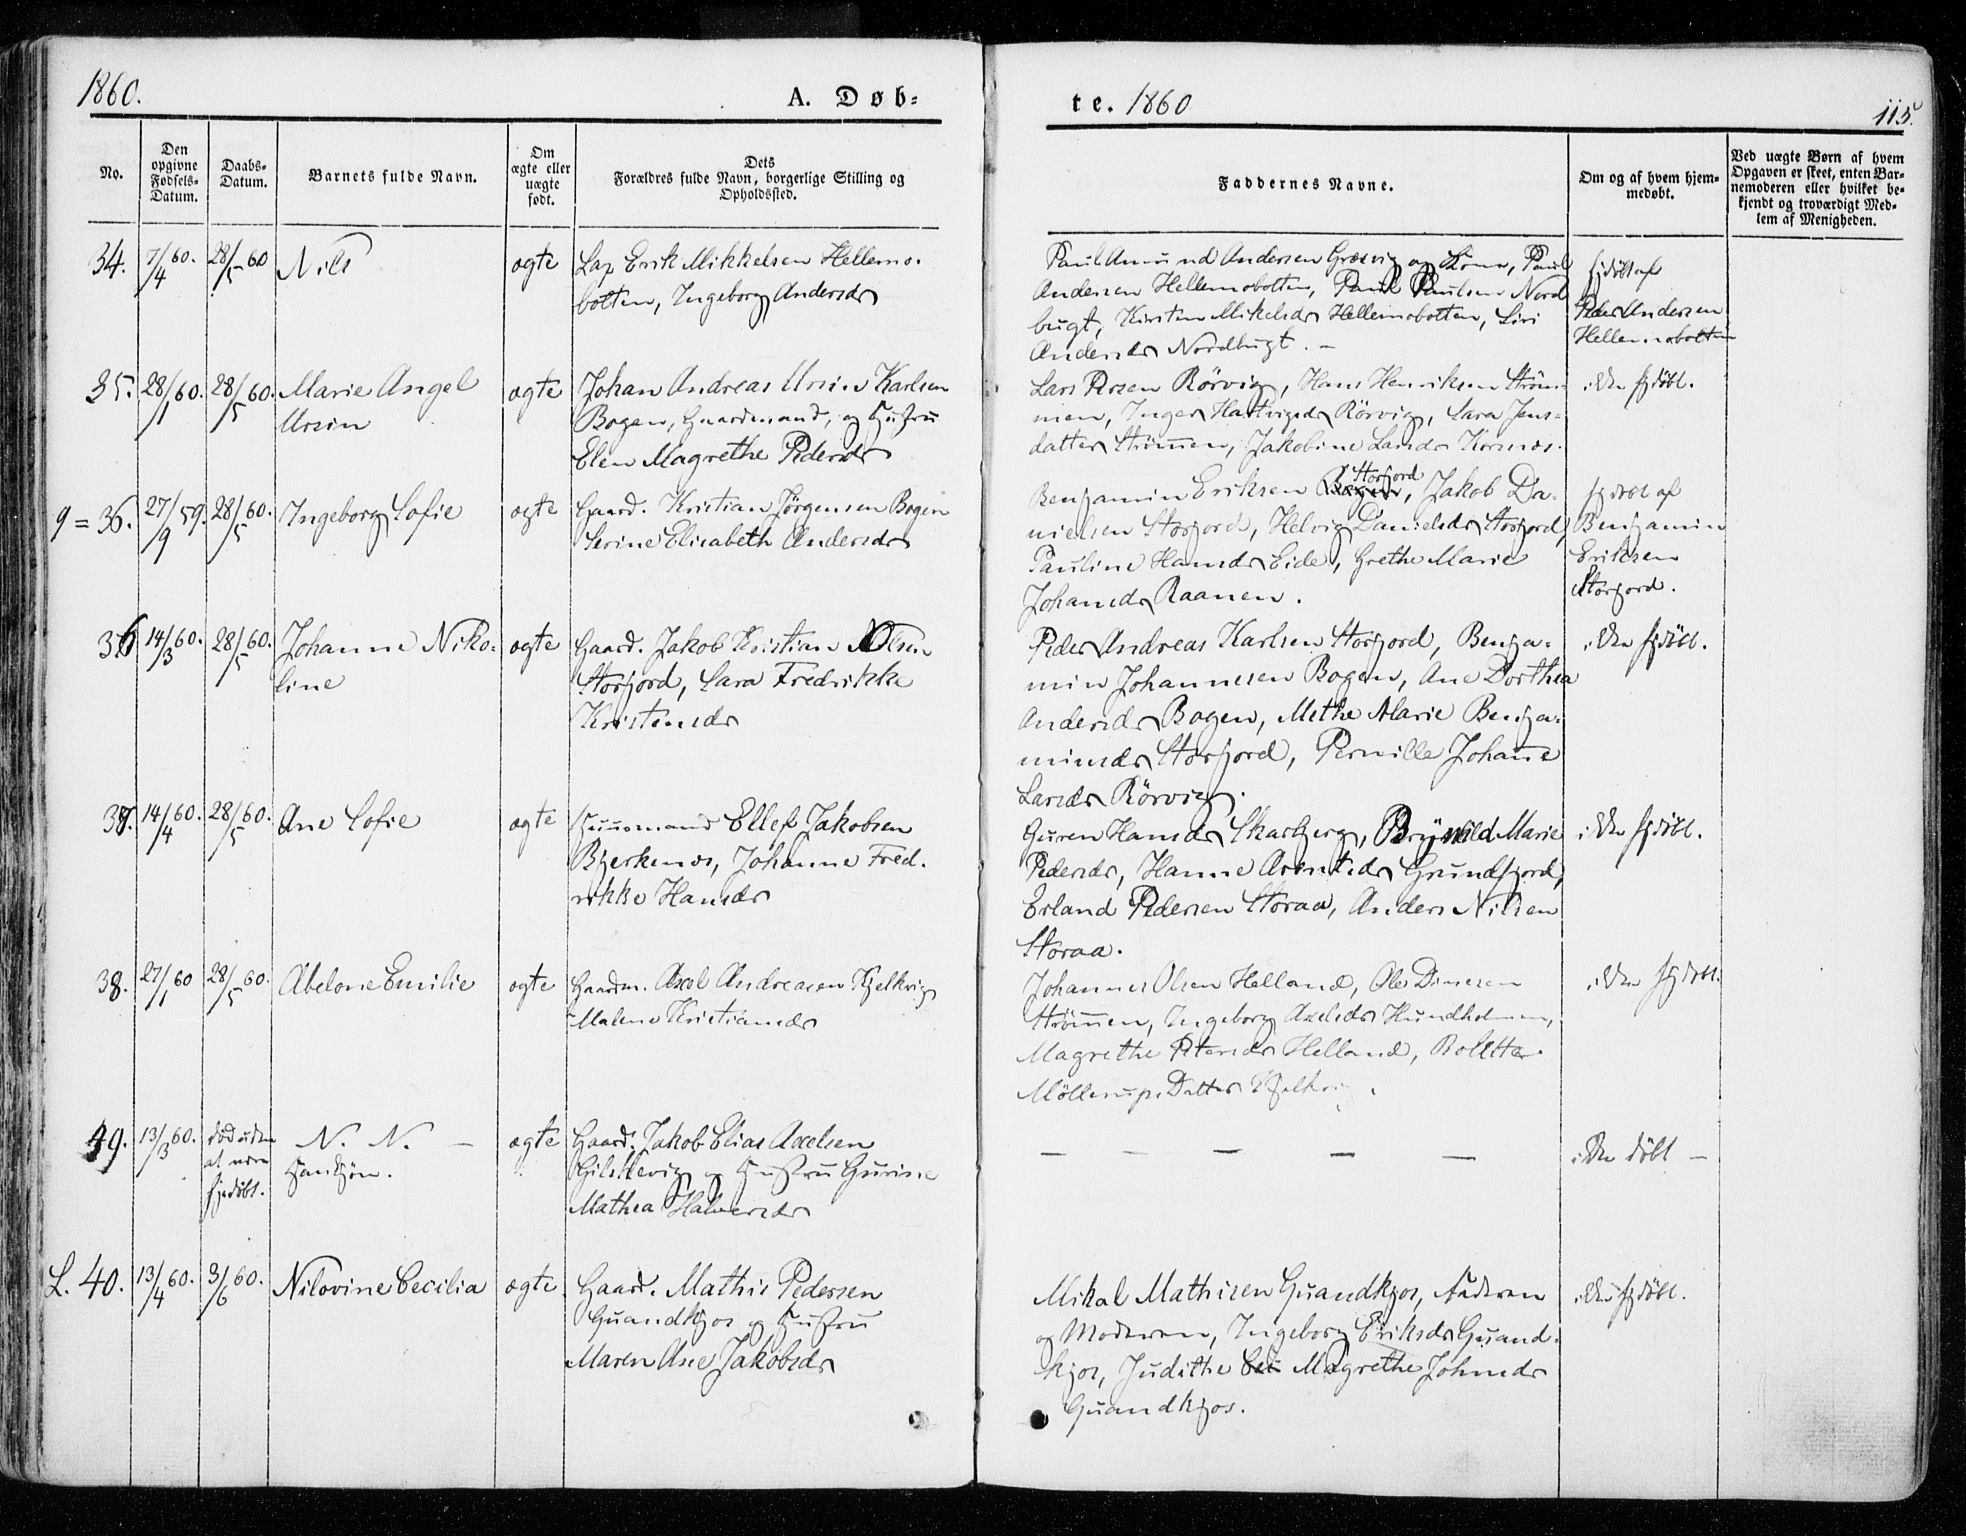 1860.
A. Døb-
te. 1860
115.
No.
Den opgivne Fødsels-Datum.
Daabs-Datum.
Barnets fulde Navn.
Om ægte eller uægte født.
Dets Forældres fulde Navn, borgerlige Stilling og Opholdssted.
Faddernes Navne.
Om og af hvem hjem-medøbt.
Ved uægte Børn af hvem Opgaven er skeet, enten Bar-nemoderen eller hvilket be-kjendt og troværdigt Med-lem af Menigheden.
34. 7/4 60. 28/5 60 Nils ægte Lap Erik Mikkelsen Hellemo-
botten, Ingeborg Andersdr
Paul Amund Andersen Græsvig og Kone, Paul
Andersen Hellemobotten, Paul Paulsen Nord
bugt, Kirsten Mikelsdr Hellemobotten, Siri
Andersdr Nordbugt. –
hjdøbt af
Peder Andersen
Hellemobotten
35. 28/1 60. 28/5 60. Marie Angel
Ursin
ægte Johan Andreas Ursin Karlsen
Bogen, Gaardmand, og Hustru
Elen Magrethe Pedersdr
Lars Persen Rörvig, Hans Henriksen Ström-
men, Inger Hartvigsdr Rörvig, Sara Jens-
datter Strömmen, Jakobine Larsdr Korsnæs.
ikke hjdöbt.
9 = 36. 27/9 59. 28/5 60. Ingeborg Sofie ægte Gaard. Kristian Jørgensen Bogen
Serine Elisabeth Andersdr
Storfjord
Benjamin Eriksen Bogen, Jakob Da-
nielsen Storfjord, Helvig Danielsdr Storfjord,
Pauline Hansdr Eide, Grethe Marie
Johansdr Raanen.
hjdøbt af
Benjamin
Eriksen
Storfjord.
36 14/3 60. 28/5 60. Johanne Niko-
line
ægte Gaard. Jakob Kristian Olsen
Storfjord, Sara Fredrikke
Kristensdr
Peder Andreas Karlsen Storfjord, Benja-
min Johannesen Bogen, Ane Dorthea
Andersdr Bogen, Methe Marie Benja-
minsdr Storfjord, Pernille Johanne
Larsdr Rörvig.
ikke hjdöbt.
37. 14/4 60. 28/5 60. Ane Sofie ægte Huusmand Ellef Jakobsen
Bjerkenæs, Johanne Fred-
rikke Hansdr
Guren Hansdr Skarbjerg, Brynild Marie
Pedersdr, Hanne Arentsdr Grundfjord,
Erland Pedersen Storaa, Anders Nilsen
Storaa.
ikke hjdöbt.
38. 27/1 60 28/5 60. Abelone Emilie ægte Gaardm. Axel Andreasen Kjelkvig
Malene Kristiansdr
Johannes Olsen Helland, Ole Dinesen
Strömmen, Ingeborg Axelsdr Hundholmen,
Magrethe Petersdr Helland, Bolette
Möllerups Datter Kjelkvig.
ikke hjdöbt.
39. 13/3 60. død uden
at være
hjedøbt.
N. N. –
Hankjön.
ægte Gaard. Jakob Elias Axelsen
og Hustru Gurine
Mathea Halversdr
– – – – – –
ikke døbt –
L. 40. 13/4 60. 3/6 60. Nilovine Cecilia ægte Gaard. Mathis Pedersen
Guandkjos og Hustru
Maren Ase Jakobsdr
Mikal Mathisen Guandkjos, Faderen
og Moderen, Ingeborg Eriksdr Guand-
kjos, Judithe Magrethe Johnsdr
Guandkjos.
ikke hjdöbt.